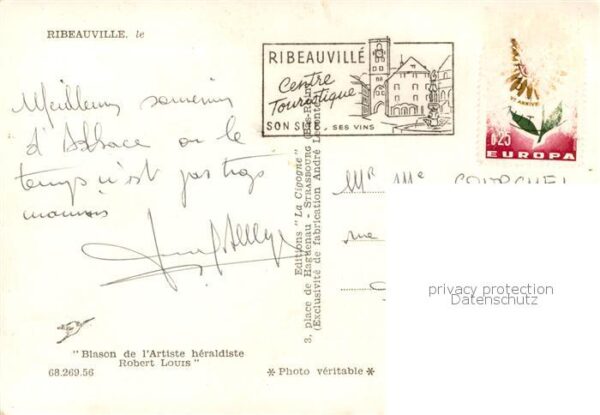 RIBEAUVILLE, le
RIBEAUVILLÉ
Centre
Touristique
SON SITE, SES VINS
0,25
EUROPA
Meilleurs souvenirs
d'Alsace où le
temps n'est pas trop
mauvais
Mr Me
rue
Editions "La Cigogne"
3, place de Haguenau - STRASBOURG (Bas-Rhin)
(Exclusivité de fabrication André Leconte)
privacy protection
Datenschutz
"Blason de l'Artiste héraldiste
Robert LOUIS"
68.269.56
* Photo véritable *